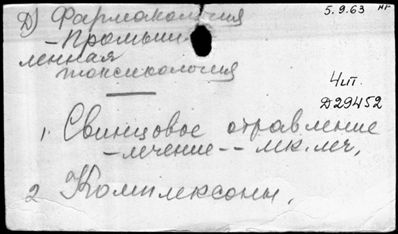 Д) Фармакология
5.9.63 НГ
-промыш
ленная
токсикология
4/т.
Д29452
1. Свинцовое отравление
-лечение -- мк. леч,
2 Комплексоны.